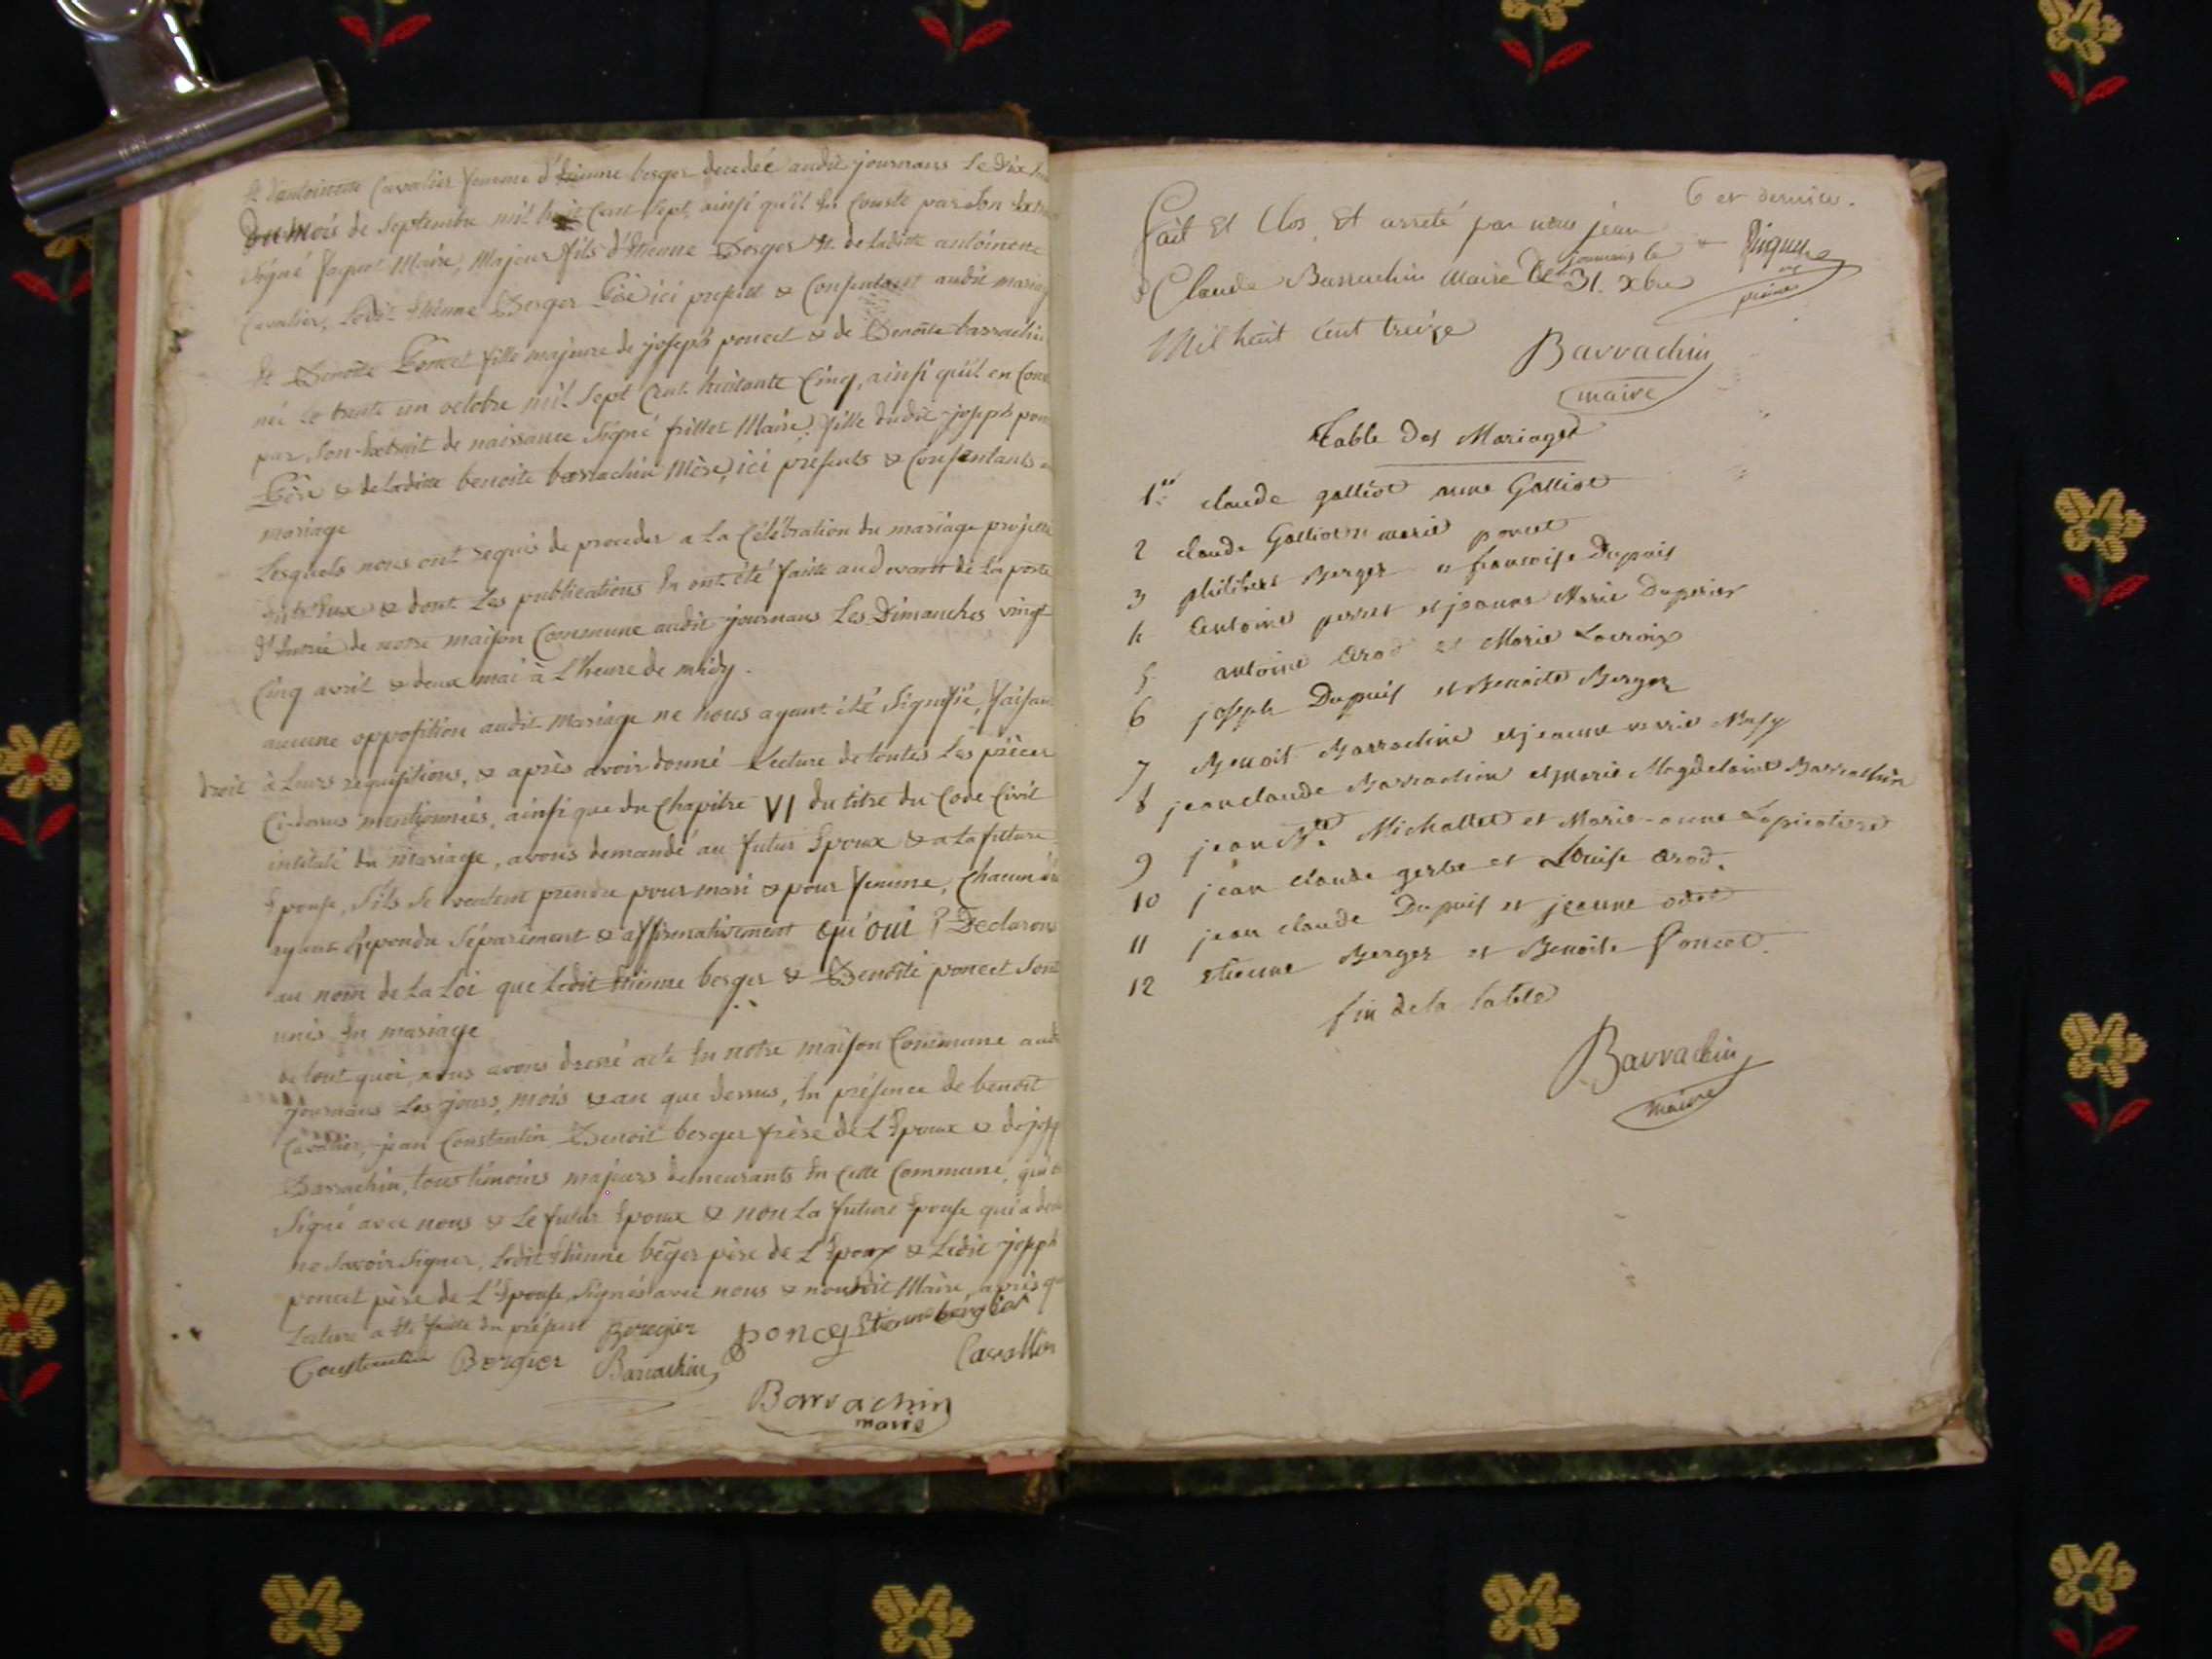 & d'antoinette Cavalier femme d'Etienne berger decedée audit journans Le Dix
Du Mois de Septembre mil huit Cent Sept, ainsi qu'il En Conste par Son
Signé Maire, Majeur fils d'Etienne Berger & de Laditte antoinette
Cavalier, Ledit Etienne Berger Père ici present & Consentant audit mariage
Et Benoite Poncet fille majeure de joseph poncet & de Benoite barrachin
née le trente un octobre mil Sept Cent huitante Cinq, ainsi qu'il en
par Son Extrait de naissance Signé frillet Maire, fille dudit joseph
Père & de Laditte benoite barrachin Mère, ici presents & Consentants
mariage
Lesquels nous ont requis de proceder a La Célébration du mariage projetté
Entr'Eux & dont Les publications En ont été faitte au devant de La porte
d'Entrée de notre maison Commune audit journans Les Dimanches vingt
Cinq avril & deux mai à L'heure de midy.
aucune opposition audit mariage ne nous ayant été Signifié, faisant
droit à Leurs requisitions, & après avoir donné Lecture de toutes Les pièces
Cidessus mentionnées, ainsi que du Chapitre VI du titre du Code Civil
intitulé du mariage, avons demandé au futur Epoux & a La future
Epouse, S'ils Se veulent prendre pour mari & pour femme, Chacun
ayant répondu Séparément & affirmativement qu'oui ? Declarons
au nom de La Loi que Ledit Etienne berger & Benoite poncet Sont
unis En mariage
de tout quoi, nous avons dressé acte En notre maison Commune
journans Les jours, mois & an que dessus, En présence de benoit
Cavallier, jean Constantin Benoit berger frère de L'Epoux & de
Barrachin, tous témoins majeurs demeurants En Cette Commune,
Signé avec nous & Le futur Epoux & non La future Epouse qui a
ne Savoir Signer, Ledit Etienne berger père de L'Epoux & Ledit joseph
poncet père de L'Epouse Signés avec nous & nousdit Maire, après
Lecture a été faitte du présent Beregier poncet Etienne bergier
Constantin Bergier Barrachin Cavallier
Barrachin
maire
6 et dernier.
Fait Et Clos, Et arreté par nous jean
Claude Barrachin Maire De journans le 31. xbre
Mil huit Cent treize
Barrachin
maire
Table Des Mariages
1er claude galliot anne Galliot
2 claude Galliot marie poncet
3 philibert Berger francoise Dupuis
4 antoine perret et jeanne Marie Duperier
5 antoine arod et Marie Lacroix
6 joseph Dupuis et Benoite Berger
7 Benoit Barrachin et jeanne marie
8 jean claude Barrachin et Marie Magdelaine Barrachin
9 jean Bte Michallet et Marie-anne Lapicotiere
10 jean claude gerbe et Louise arod.
11 jean claude Dupuis et jeanne odet
12 etienne Berger et Benoite Poncet.
fin de la table
Barrachin
maire